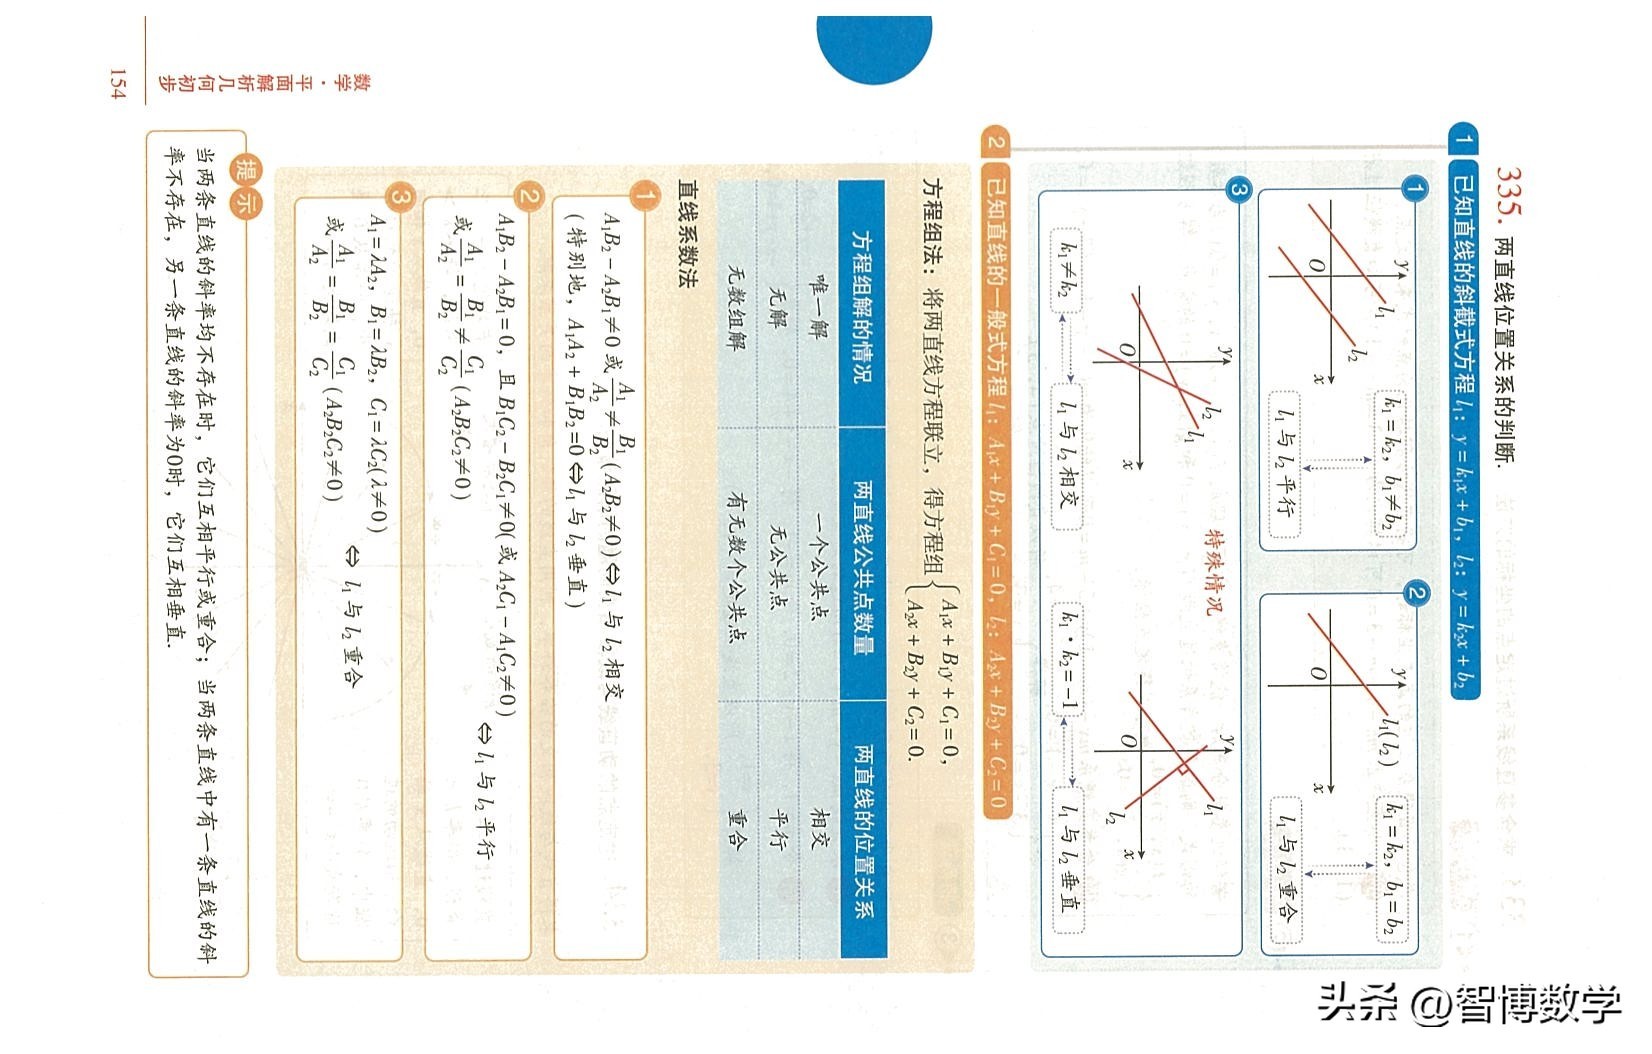 335. 两直线位置关系的判断.
1 已知直线的斜截式方程 l₁: y = k₁x + b₁, l₂: y = k₂x + b₂
1
y
l₁
l₂
O
x
k₁ = k₂, b₁ ≠ b₂
l₁ 与 l₂ 平行
2
y
l₁(l₂)
O
x
k₁ = k₂, b₁ = b₂
l₁ 与 l₂ 重合
3
特殊情况
y
l₂
l₁
O
x
k₁ ≠ k₂
l₁ 与 l₂ 相交
y
l₁
O
l₂
x
k₁ · k₂ = -1
l₁ 与 l₂ 垂直
2 已知直线的一般式方程 l₁: A₁x + B₁y + C₁ = 0, l₂: A₂x + B₂y + C₂ = 0
方程组法: 将两直线方程联立, 得方程组 { A₁x + B₁y + C₁ = 0,
A₂x + B₂y + C₂ = 0.
方程组解的情况 两直线公共点数量 两直线的位置关系
唯一解 一个公共点 相交
无解 无公共点 平行
无数组解 有无数个公共点 重合
直线系数法
1
A₁B₂ - A₂B₁ ≠ 0 或 A₁/A₂ ≠ B₁/B₂ (A₂B₂ ≠ 0) ⇔ l₁ 与 l₂ 相交
(特别地, A₁A₂ + B₁B₂ = 0 ⇔ l₁ 与 l₂ 垂直)
2
A₁B₂ - A₂B₁ = 0, 且 B₁C₂ - B₂C₁ ≠ 0 (或 A₂C₁ - A₁C₂ ≠ 0)
或 A₁/A₂ = B₁/B₂ ≠ C₁/C₂ (A₂B₂C₂ ≠ 0)
⇔ l₁ 与 l₂ 平行
3
A₁ = λA₂, B₁ = λB₂, C₁ = λC₂ (λ ≠ 0)
或 A₁/A₂ = B₁/B₂ = C₁/C₂ (A₂B₂C₂ ≠ 0)
⇔ l₁ 与 l₂ 重合
提示
当两条直线的斜率均不存在时, 它们互相平行或重合; 当两条直线中有一条直线的斜
率不存在, 另一条直线的斜率为0时, 它们互相垂直.
数学·平面解析几何初步
154
头条 @智博数学